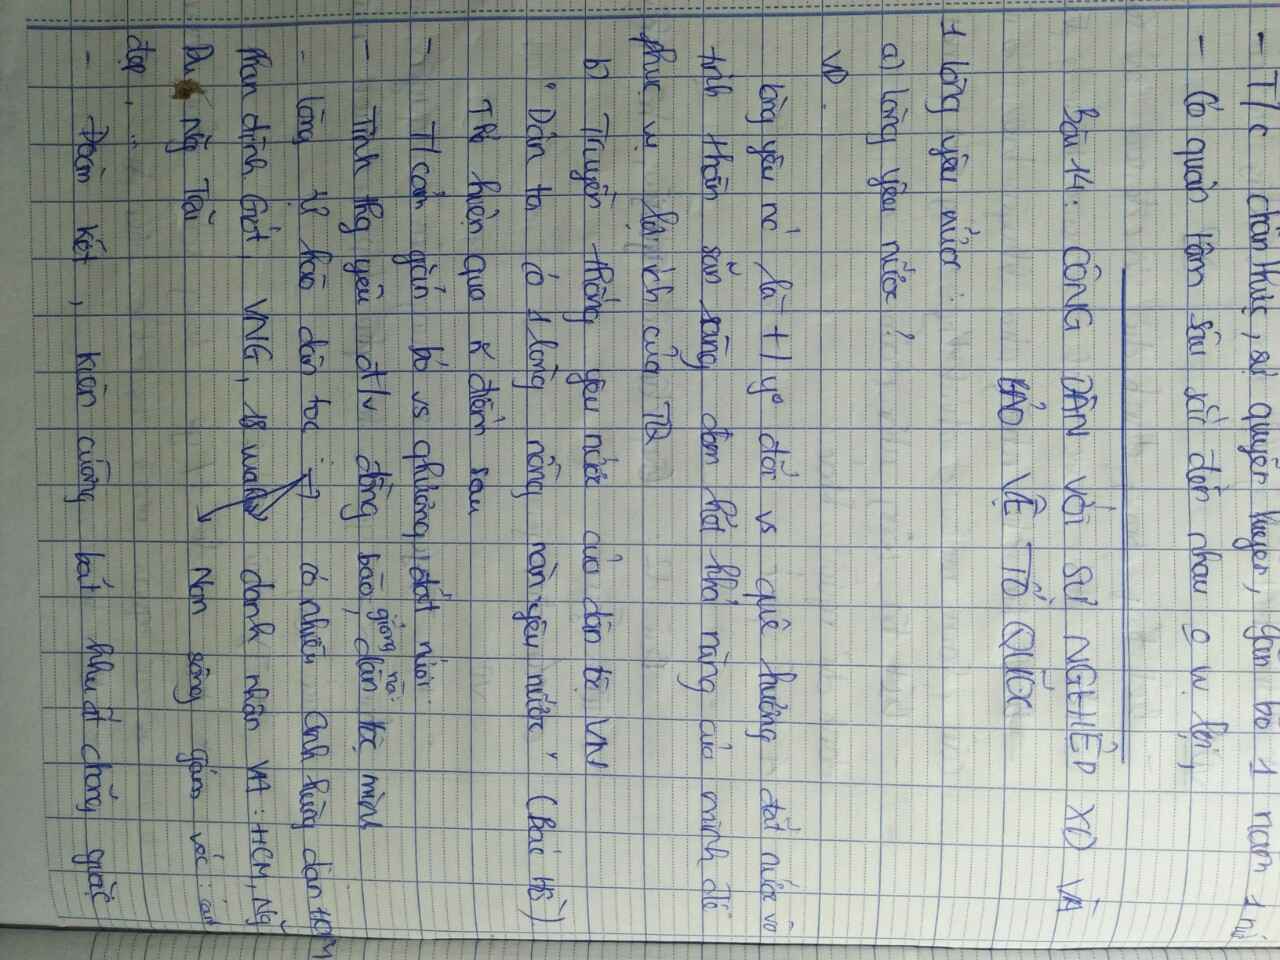 - T/c chân thực, sự quyến luyến, gắn bó 1 nam 1 nữ
- Có quan tâm sâu sắc đến nhau o vụ lợi,
Bài 14: CÔNG DÂN VỚI SỰ NGHIỆP XD VÀ
BẢO VỆ TỔ QUỐC
1 lòng yêu nước:
a) lòng yêu nước?
VD.
lòng yêu nc là t/y đối vs quê hương đất nước và
tinh thần sẵn sàng đem hết khả năng của mình để
phục vụ lợi ích của TQ
b) Truyền thống yêu nước của dân tộc VN
"Dân ta có 1 lòng nồng nàn yêu nước" (Bác Hồ)
Thể hiện qua đ điểm sau
- T/cảm gắn bó vs quê hương, đất nước.
- Tình thg yêu đ/v đồng bào, giống nòi, dân tộc mình
- lòng tự hào dân tộc: có nhiều anh hùng dân tộc
Phan đình Giót, VNG, danh nhân VH: HCM, Ng
Du, Ng Trãi Non sông gấm vóc:
đẹp..."
- Đoàn kết, kiên cường bất khuất chống giặc